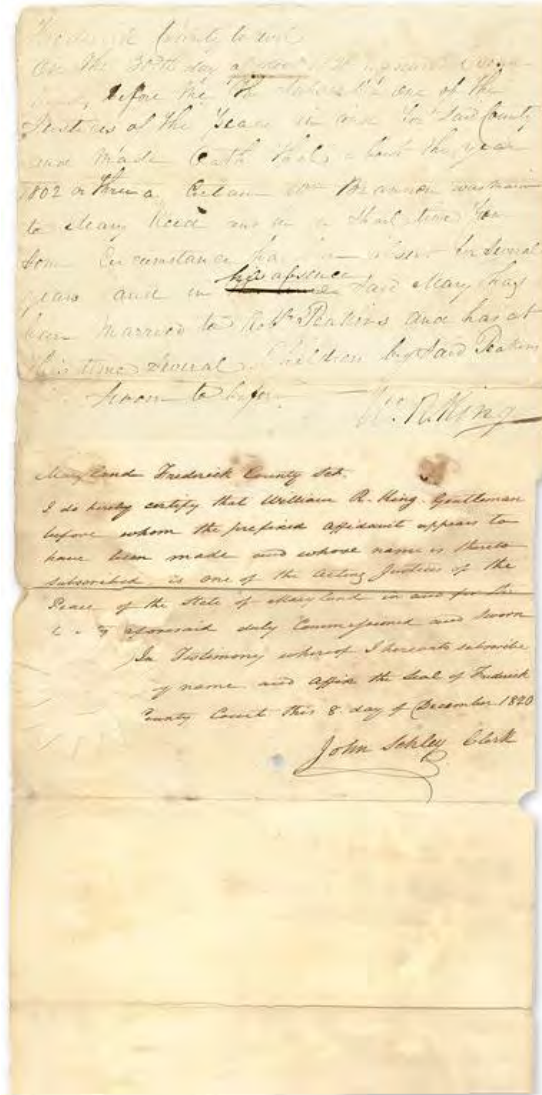 Frederick County to wit
On the 30th day of
before me the Subscriber one of the
Justices of the Peace in and for Said County
and made Oath that about the year
1802 or three a Certain Wm Brannon was
to Mary Reed and in a Short time
from Circumstance has absent for Several
years and in his absence Said Mary has
been Married to Robt Peakins and has at
this time Several Children by Said Peakins
Sworn to before Wm R. King
Maryland Frederick County Sct.
I do hereby certify that William R. King Gentleman
before whom the prefixed affidavit appears to
have been made and whose name is thereto
subscribed is one of the acting Justices of the
Peace of the State of Maryland in and for the
aforesaid duly Commissioned and Sworn
In Testimony whereof I hereunto subscribe
my name and affix the Seal of Frederick
County Court this 8 day of December 1820
John Schley Clerk